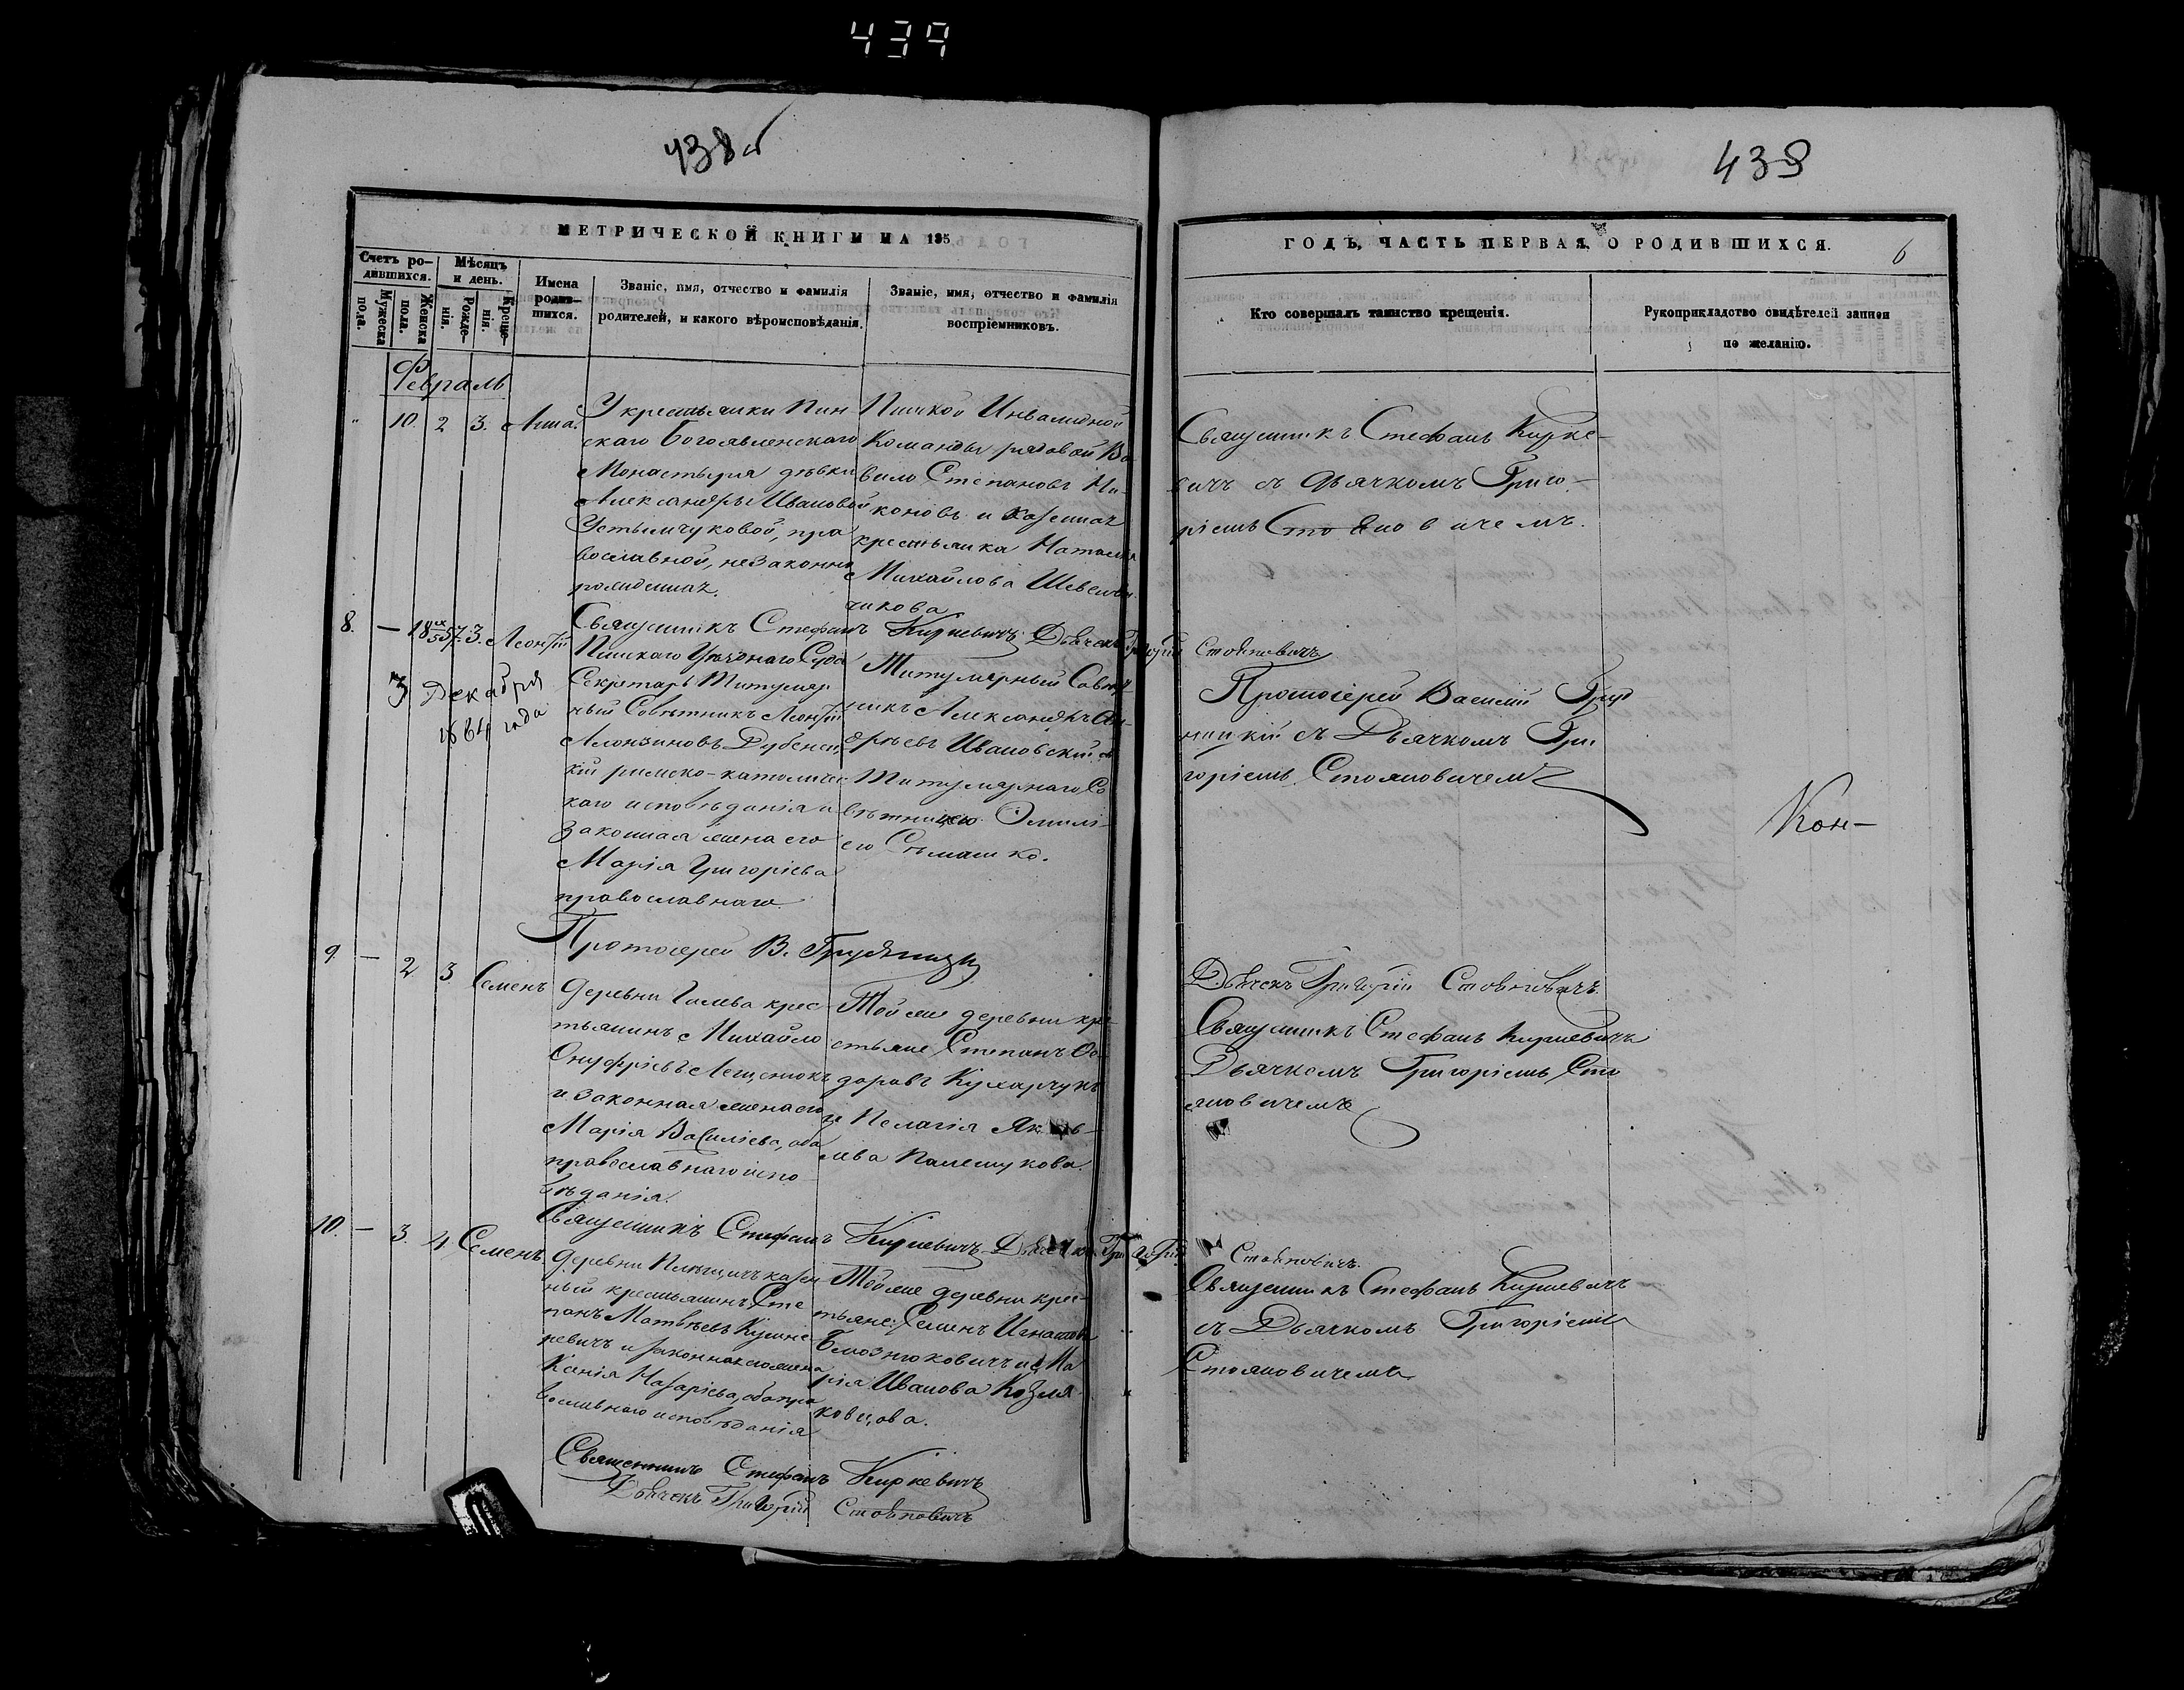 439
438 об
439
МЕТРИЧЕСКОЙ КНИГИ НА 185
ГОДЪ, ЧАСТЬ ПЕРВАЯ, О РОДИВШИХСЯ.
6
Счетъ родившихся.
Мужеска пола.
Женска пола.
Мѣсяцъ и день.
Рожденія.
Крещенія.
Имена родившихся.
Званіе, имя, отчество и фамилія
родителей, и какого вѣроисповѣданія.
Званіе, имя, отчество и фамилія
воспріемниковъ.
Кто совершалъ таинство крещенія.
Рукоприкладство свидѣтелей записи
по желанію.
Февраль
" 10. 2 3. Анна.
У крестьянки Пин-
скаго Богоявленскаго
Монастыря дѣвки
Александры Ивановой
Устимчуковой, пра
вославной, незаконно
рожденная.
Пинской Инвалидной
Команды рядовой Ва
вило Степановъ Ни-
коновъ и казенная
крестьянка Наталія
Михайлова Шевель
чикова
Священникъ Стефанъ Кирке-
вичъ съ Дьячкомъ Григо-
ріемъ Стояновичемъ.
Священникъ Стефанъ Киркевичъ Дьячекъ Григорій Стояновичъ
8. — 3. Леонтій
3 Декабря
1864 года
Пинскаго Уѣзднаго Суда
Секретарь Титуляр
ный Совѣтникъ Леонтій
Дубенец
кій римско-католичес
каго исповѣданія и
законная жена его
Марія Григорієва
православнаго
Титулярный Совѣт-
никъ Александръ Ан-
дреевъ Ивановскій съ
Титулярнаго Со
вѣтницею Эмилі-
ею Сѣмашко.
Протоіерей Василій Груд
ницкій съ Дьячкомъ Гри
горіемъ Стояновичемъ
Кон-
Протоіерей В. Грудницкій
Дьячекъ Григорій Стояновичъ.
9 — 2 3 Семенъ
Деревни Галева крес
тьянинъ Михайло
Онуфріевъ Лещенюкъ
и законная жена его
Марія Василіева, оба
православнаго испо
вѣданія.
Той же деревни кре-
стьяне Степанъ Ѳе-
доровъ Кухарчукъ
и Пелагія Яков-
лева Полещукова.
Священникъ Стефанъ Киркевичъ
Дьячкомъ Григоріемъ Сто
яновичемъ
Священникъ Стефанъ Киркевичъ Дьячекъ Григорій Стояновичъ.
10. — 3. 4 Семенъ.
Деревни Плещицъ казен
ный крестьянинъ Сте
панъ Матвѣевъ Кушне
ревичъ и законная жена
Ксенія Назаріева, оба пра
вославнаго исповѣданія
Той же деревни крес-
тьяне: Семенъ Игнатовъ
Блознюковичъ и Ма
рія Иванова Козля
ковцова.
Священникъ Стефанъ Киркевичъ
съ Дьячкомъ Григоріемъ
Стояновичемъ
Священникъ Стефанъ Киркевичъ
Дьячекъ Григорій Стояновичъ